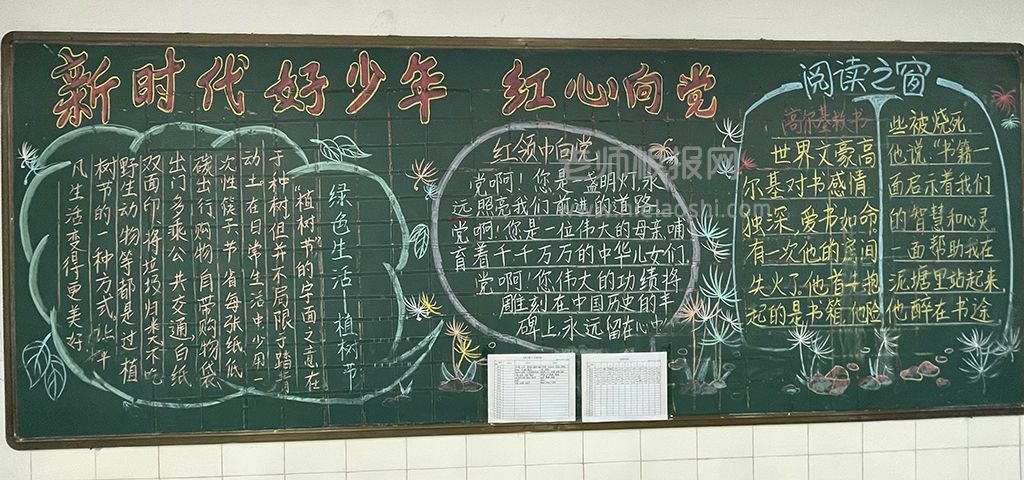 新时代好少年 红心向党
绿色生活—植树节
“植树节”的字面之意在
于种树,但并不局限于踏青
动土,在日常生活中,少用一
次性筷子,节省每张纸,低
碳出行,购物自带购物袋,
出门多乘公共交通,白纸
双面印,将垃圾归类,不吃
野生动物等,都是过植
树节的一种方式,让平
凡生活变得更美好
红领巾向党
党啊!您是一盏明灯,永
远照亮我们前进的道路,
党啊!您是一位伟大的母亲哺
育着千千万万的中华儿女们,
党啊!您伟大的功绩将
雕刻在中国历史的丰
碑上,永远留在心中
阅读之窗
高尔基救书
世界文豪高
尔基对书感情
独深,爱书如命,
有一次他的房间
失火了,他首先抱
起的是书籍,他险
些被烧死
他说:“书籍一
面启示着我们
的智慧和心灵
一面帮助我在
泥塘里站起来,
他醉在书途
老师板报网